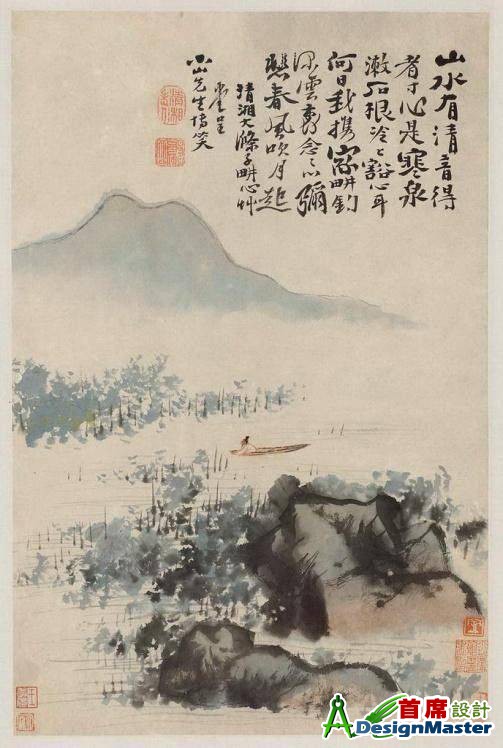 山水有清音得
者寸心是寒泉
漱石根泠〻豁心耳
何日我攜家畊釣
深雲裏念之心彌
愁春風吹月起
清湘大滌子畊心艸
堂呈
小山先生博笑
首席設計
ADesignMaster